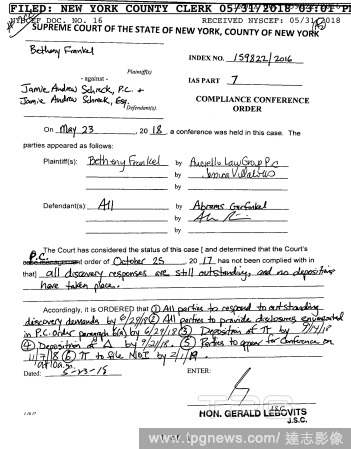 FILED: NEW YORK COUNTY CLERK 05/31/2018 03:01 PM
NYSCEF DOC. NO. 16 RECEIVED NYSCEF: 05/31/2018
SUPREME COURT OF THE STATE OF NEW YORK, COUNTY OF NEW YORK
Bethenny Frankel
INDEX NO. 159822/2016
Plaintiff(s)
- against -
IAS PART 7
Jamie Andrew Schreck, P.C. &
Jamie Andrew Schreck, Esq.
Defendant(s).
COMPLIANCE CONFERENCE
ORDER
On May 23, 2018, a conference was held in this case. The
parties appeared as follows:
Plaintiff(s): Bethenny Frankel by Law Group PC
by Villalobos
by
Defendant(s): All by Abrams Garfinkel
by
by
The Court has considered the status of this case [ and determined that the Court's
P.C. order of October 25, 2017 has not been complied with in
that] all discovery responses are still outstanding, and no depositions
have taken place.
Accordingly, it is ORDERED that ① All parties to respond to outstanding
discovery demands by 6/29/18 ② All parties to provide disclosures enumerated
in P.C. order paragraph by 6/29/18 ③ Deposition of π by
④ Deposition of Δ by 9/21/18. ⑤ Parties to appear for conference on
11/7/18 ⑥ π to file NOI by 2/1/19.
at 10a.
Dated: 5-23-18
ENTER:
HON. GERALD LEBOVITS
J.S.C.
www.tpgnews.com / 達志影像